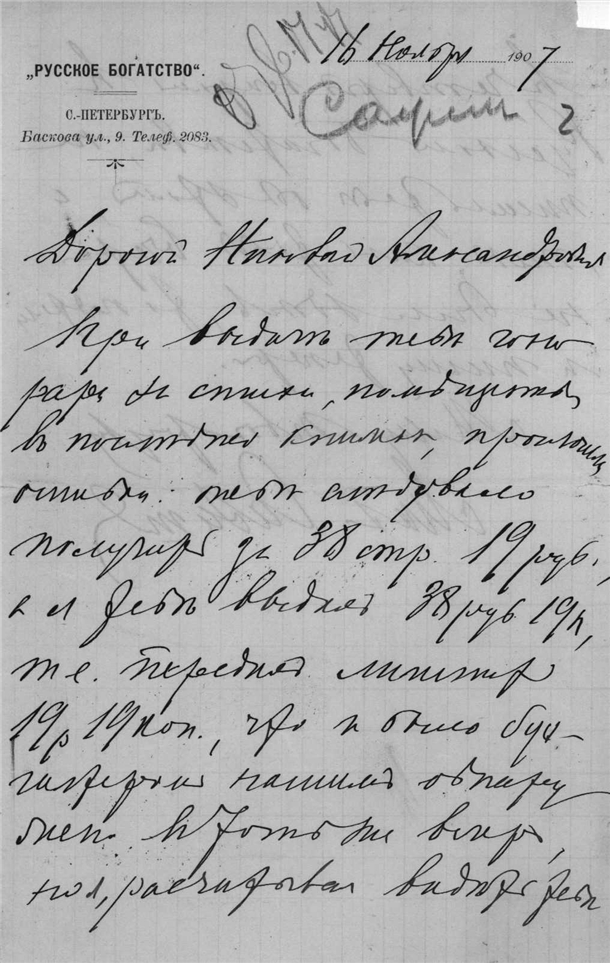 16 Ноября 1907
„РУССКОЕ БОГАТСТВО“.
С.-ПЕТЕРБУРГЪ.
Баскова ул., 9. Телеф. 2083.
2
Дорогой Николай Александрович
При выдачѣ тебѣ гоно
рара за стихи, помѣщенные
въ послѣдней книжкѣ, произошла
ошибка: тебѣ слѣдовало
получить за 38 стр. 19 руб.,
а я тебѣ выдалъ 38 руб. 19 к.,
т. е. передалъ лишнихъ
19 р. 19 коп., что и было бух-
галтеріей нашимъ обнару
жено въ тотъ же вечеръ,
но я, расчитывая видѣть тебя